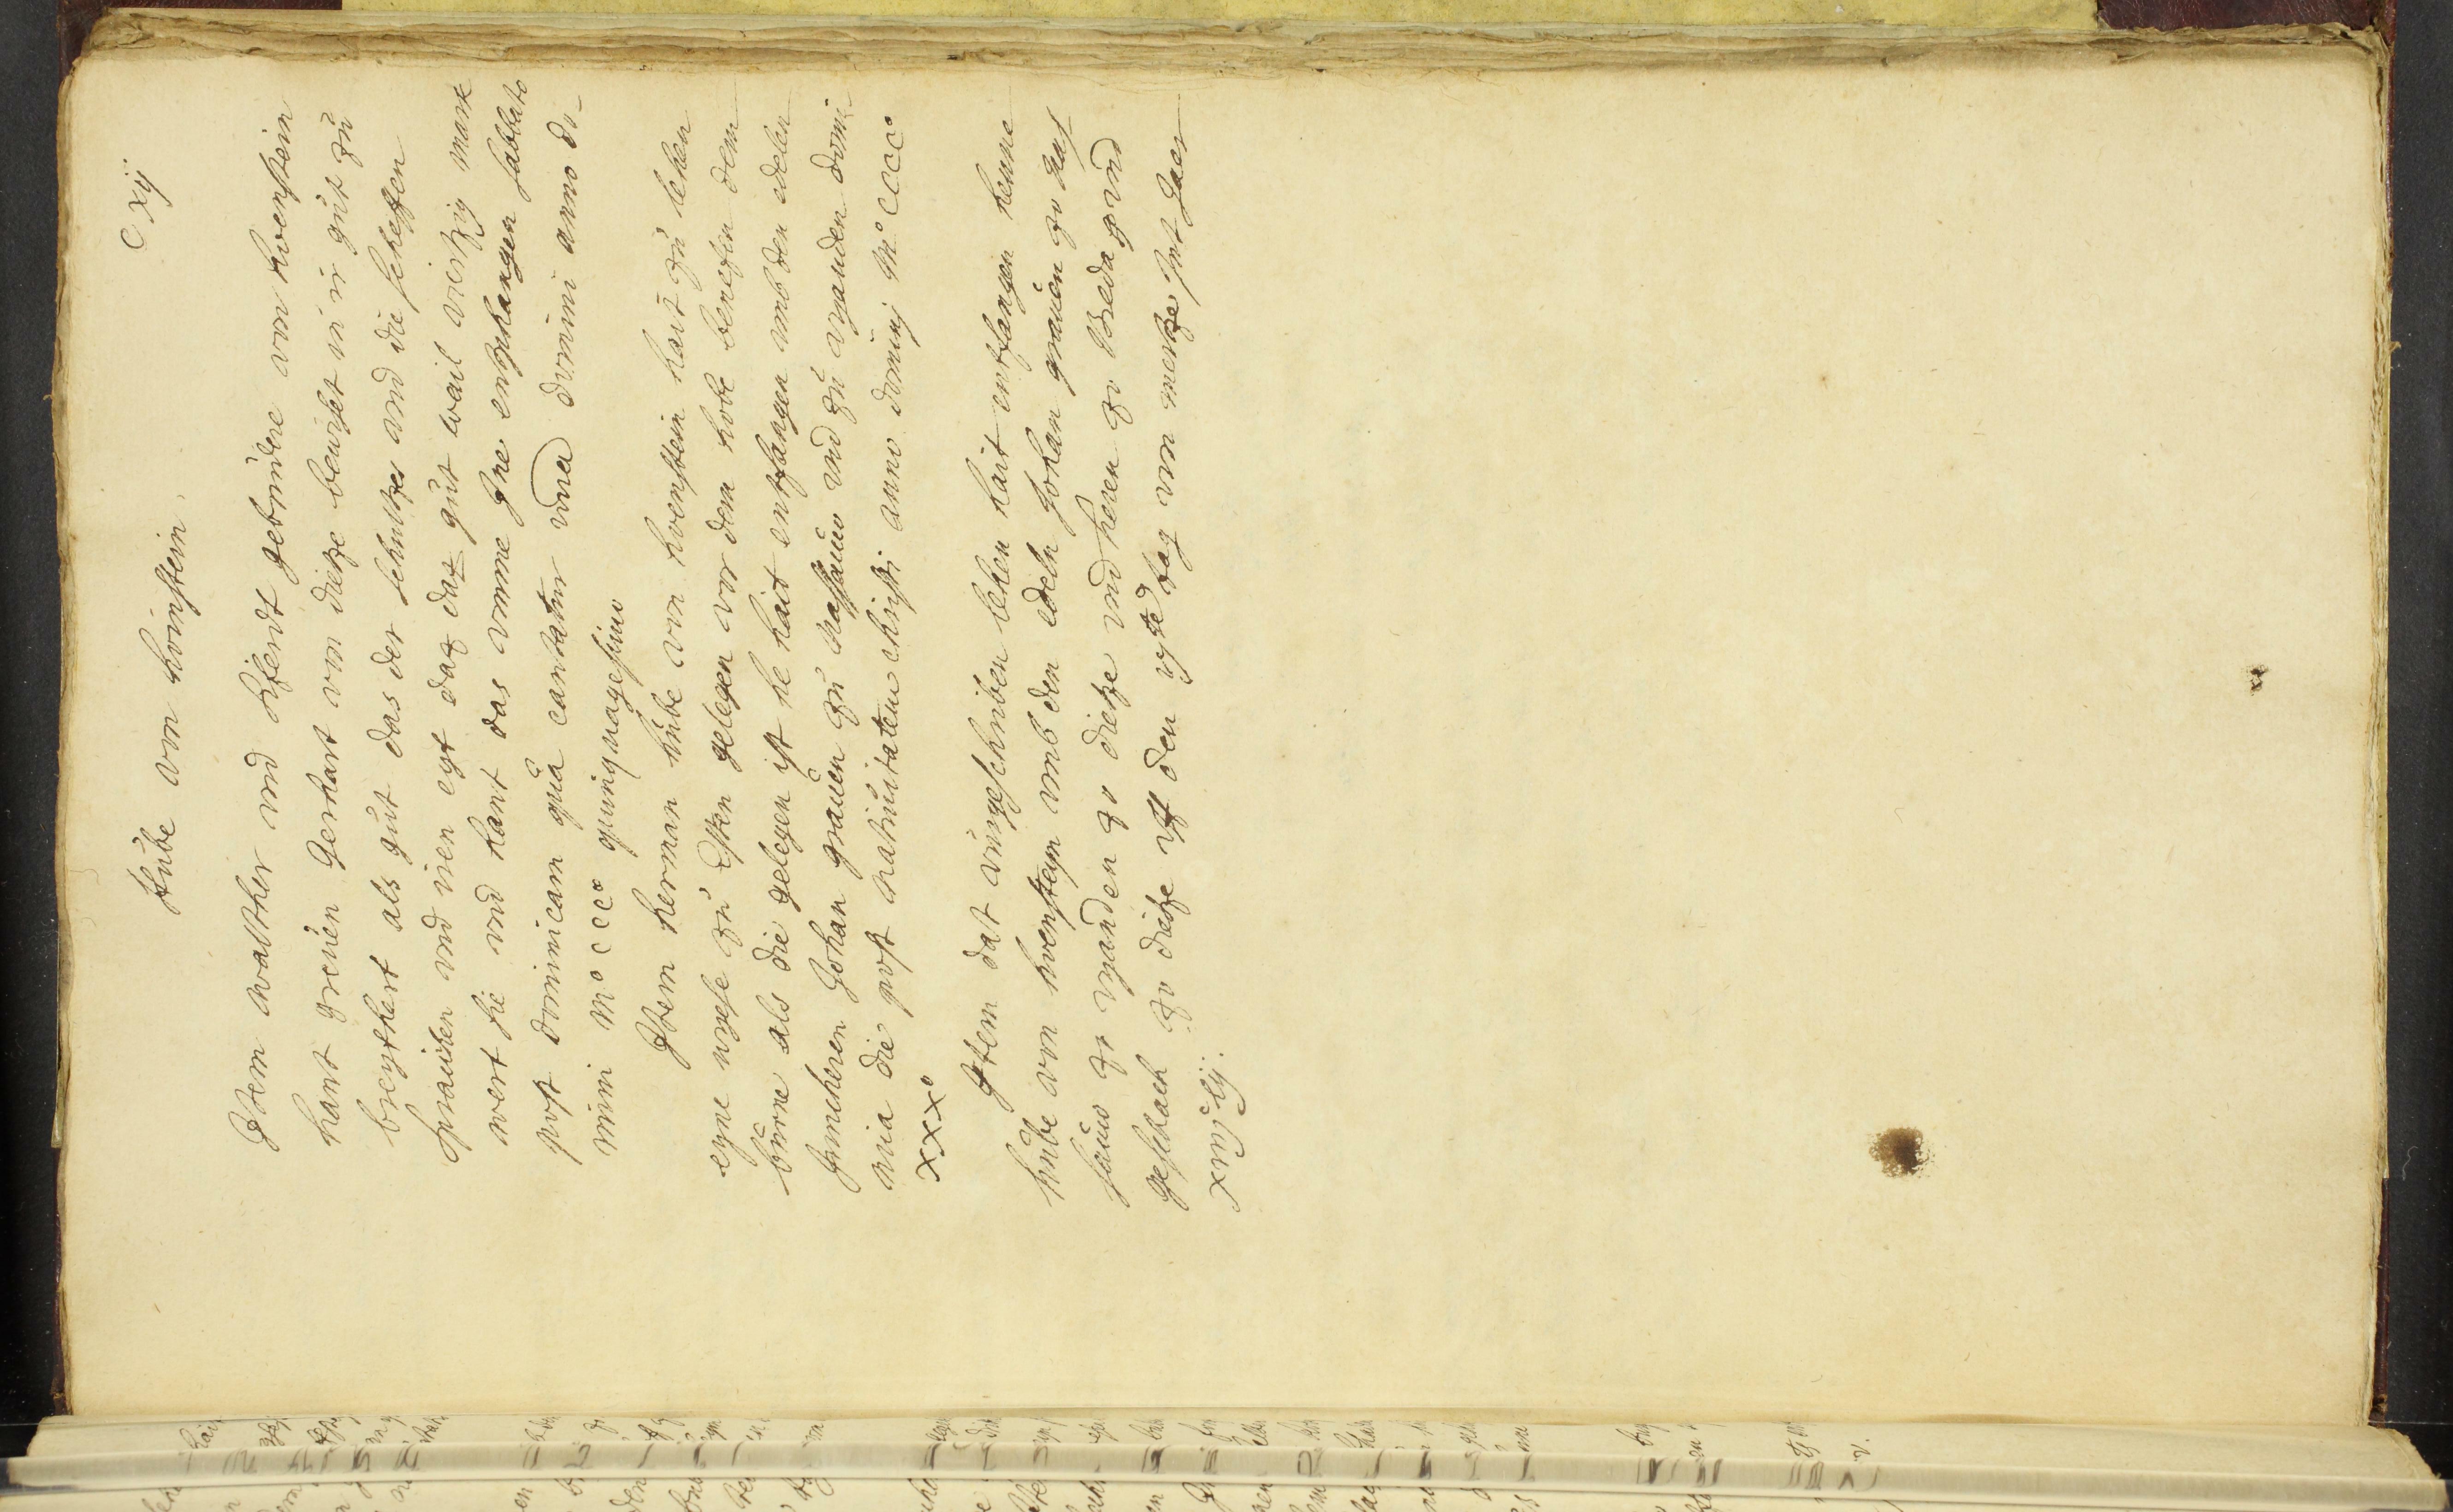 C xij
Hube von hoinstein.
Item walther und Syfferdt gebrudere von hoenstein
hant greuen Gerhart von dietze bewiset in ir gut zu
breythert als gut das der schultes und die scheffen
sprauchen und iren eyt daz daz gut wail viertzig mark
wert sie und hant das umme Jne entphangen sabbato
post dominicam qua cantatur domini anno do-
mini Mo cccco quinquagesimo
Item herman hube von hoenstein hait zu lehen
eyne wyese zu Esten gelegen vor dem hobe beneben dem
burne als die gelegen ist he hait entfangen umb den edelen
Junchern Johan grauen zu nassauw und zu vyanden domi-
nica die post natiuitatem christi anno dominj Mo cccco
xxxo
Item dat vurgeschriben lehen hait entfangen henne
hube von hoensteyn umb den edeln Johan grauen zo nas-
sauw zo vyanden zo dietze und heren zo Breda und
geschach zo dietze uff den tag von mertze Jnt Jaer